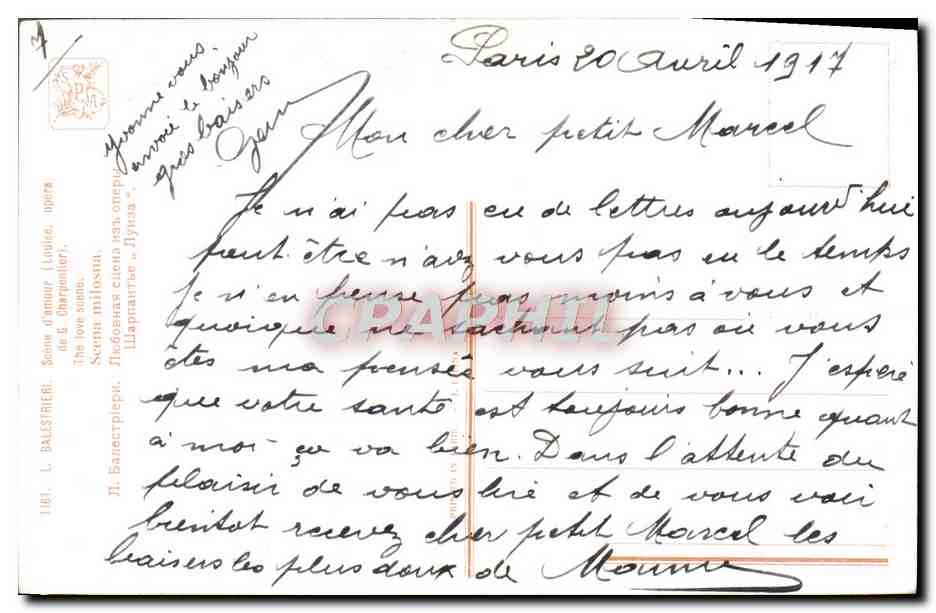 7
Paris 20 Avril 1917
Yvonne vous
envoie le bonjour
gros baisers
Mon cher petit Marcel
Je n'ai pas eu de lettres aujourd'hui
peut être n'avez vous pas eu le temps
Je n'en pense pas moins à vous et
quoique ne sachant pas où vous
êtes ma pensée vous suit... J'espère
que votre santé est toujours bonne quant
à moi ça va bien. Dans l'attente du
plaisir de vous lire et de vous voir
bientot recevez cher petit Marcel les
baisers les plus doux de
1161. L. BALESTRIERI. Scène d'amour (Louise, opera
de G. Charpentier).
The love scene.
Scena miłosna.
Л. Балестріери. Любовная сцена изъ оперы
Шарпантье „Луиза".
PRINTED IN
CPAPHIL